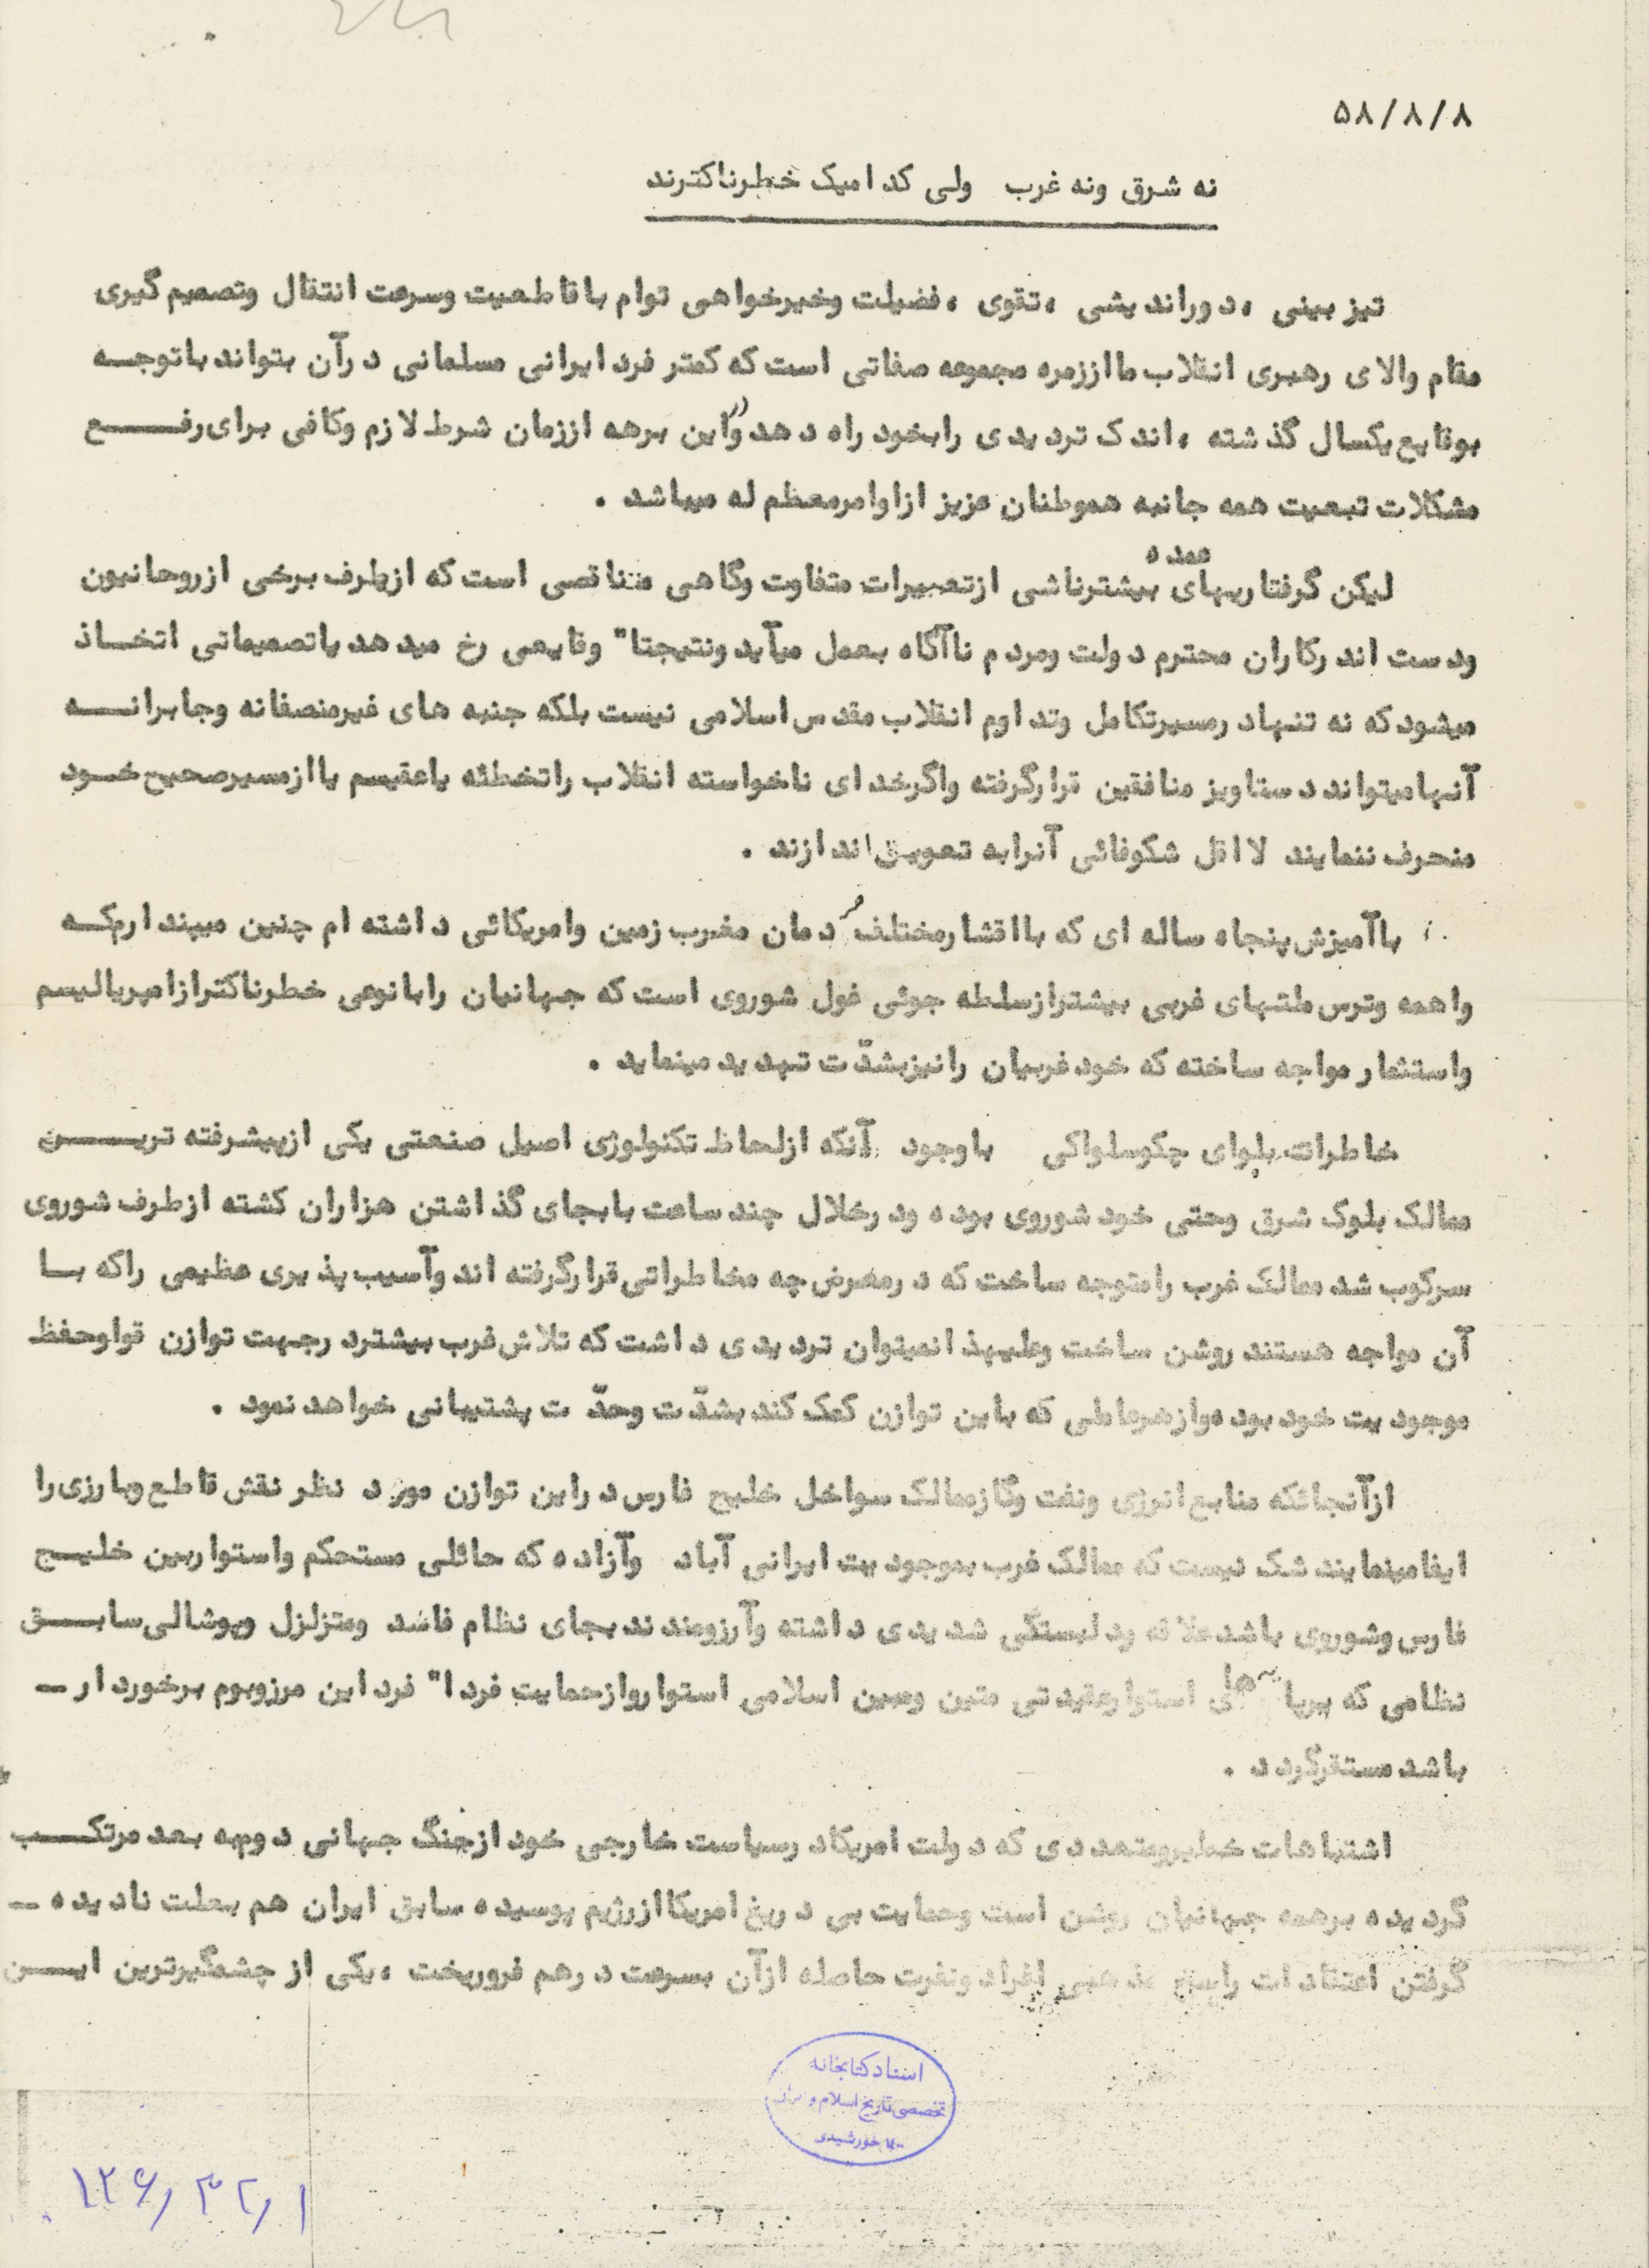 ۵۸/۸/۸
نه شرق ونه غرب ولی کدامیک خطرناکترند
تیزبینی ،دوراندیشی ،تقوی ،فضیلت وخیرخواهی توام باقاطعیت وسرعت انتقال وتصمیم گیری
مقام والای رهبری انقلاب ماازرمره مجموعه صفاتی است که کمتر فرد ایرانی مسلمانی درآن بتواند باتوجه
بوقایع یکسال گذشته ،اندک تردیدی رابخود راه دهد و دراین برهه اززمان شرط لازم وکافی برای رفع
مشکلات تبعیت همه جانبه هموطنان عزیز ازاوامرمعظم له میباشد .
لیکن گرفتاریهای عمده بیشترناشی ازتعبیرات متفاوت وگاهی متناقصی است که ازطرف برخی ازروحانیون
ودست اندرکاران محترم دولت ومردم ناآگاه بعمل میآید ونتیجتا" وقایعی رخ میدهد یاتصمیماتی اتخاذ
میشود که نه تنهاد رمسیرتکامل وتداوم انقلاب مقدس اسلامی نیست بلکه جنبه های غیرمنصفانه وجابرانه
آنهامیتواند دستاویز منافقین قرارگرفته واگرخدای ناخواسته انقلاب راتخطئه یاعقیم یاازمسیرصحیح خود
منحرف ننمایند لااقل شکوفائی آنرابه تعویق اندازند .
باآمیزش پنجاه ساله ای که بااقشارمختلف مردمان مغرب زمین وامریکائی داشته ام چنین میپندارم که
واهمه وترس ملتهای غربی بیشترازسلطه جوئی غول شوروی است که جهانیان رابانوعی خطرناکترازامپریالیسم
واستثمار مواجه ساخته که خودغربیان رانیزبشدّت تهدید مینماید .
خاطرات بلوای چکوسلواکی باوجود آنکه ازلحاظ تکنولوژی اصیل صنعتی یکی ازپیشرفته ترین
ممالک بلوک شرق وحتی خود شوروی بوده ودرخلال چند ساعت بابجای گذاشتن هزاران کشته ازطرف شوروی
سرکوب شد ممالک غرب رامتوجه ساخت که درمعرض چه مخاطراتی قرارگرفته اند وآسیب پذیری عظیمی راکه با
آن مواجه هستند روشن ساخت وعلیهذا نمیتوان تردیدی داشت که تلاش غرب بیشترد رجهت توازن قواوحفظ
موجودیت خود بوده وازهرعاملی که باین توازن کمک کند بشدّت وحدّت پشتیبانی خواهد نمود .
ازآنجائکه منابع انرژی ونفت وگازممالک سواحل خلیج فارس دراین توازن مورد نظر نقش قاطع وبارزی را
ایفامینمایند شک نیست که ممالک غرب بموجودیت ایرانی آباد وآزاده که حائلی مستحکم واستواربین خلیج
فارس وشوروی باشد علاقه ودلبستگی شدیدی داشته وآرزومندند بجای نظام فاسد ومتزلزل وپوشالی سابق
نظامی که برپا های استوارعقیدتی متین ومبین اسلامی استواروازحمایت فردا" فرد این مرزوبوم برخوردار -
باشد مستقرگردد .
اشتباهات خطیرومتعددی که دولت امریکاد رسیاست خارجی خود ازجنگ جهانی دوم به بعد مرتکب
گردیده برهمه جهانیان روشن است وحمایت بی دریغ امریکاازرژیم پوسیده سابق ایران هم بعلت نادیده -
گرفتن اعتقادات راسخ مذهبی افراد ونفرت حاصله ازآن بسرعت درهم فروریخت ،یکی از چشمگیرترین این
اسناد کتابخانه
تخصصی تاریخ اسلام و ایران
۱۲۶/۳۲/۱